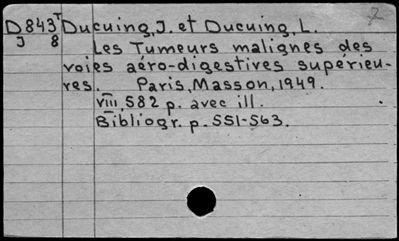 2
D843T Ducuing, J. et Ducuing, L.
J 8 Les Tumeurs malignes des
voies aéro-digestives supérieu-
res. Paris, Masson, 1949.
viii, 582 p. avec ill.
Bibliogr. p. 551-563.